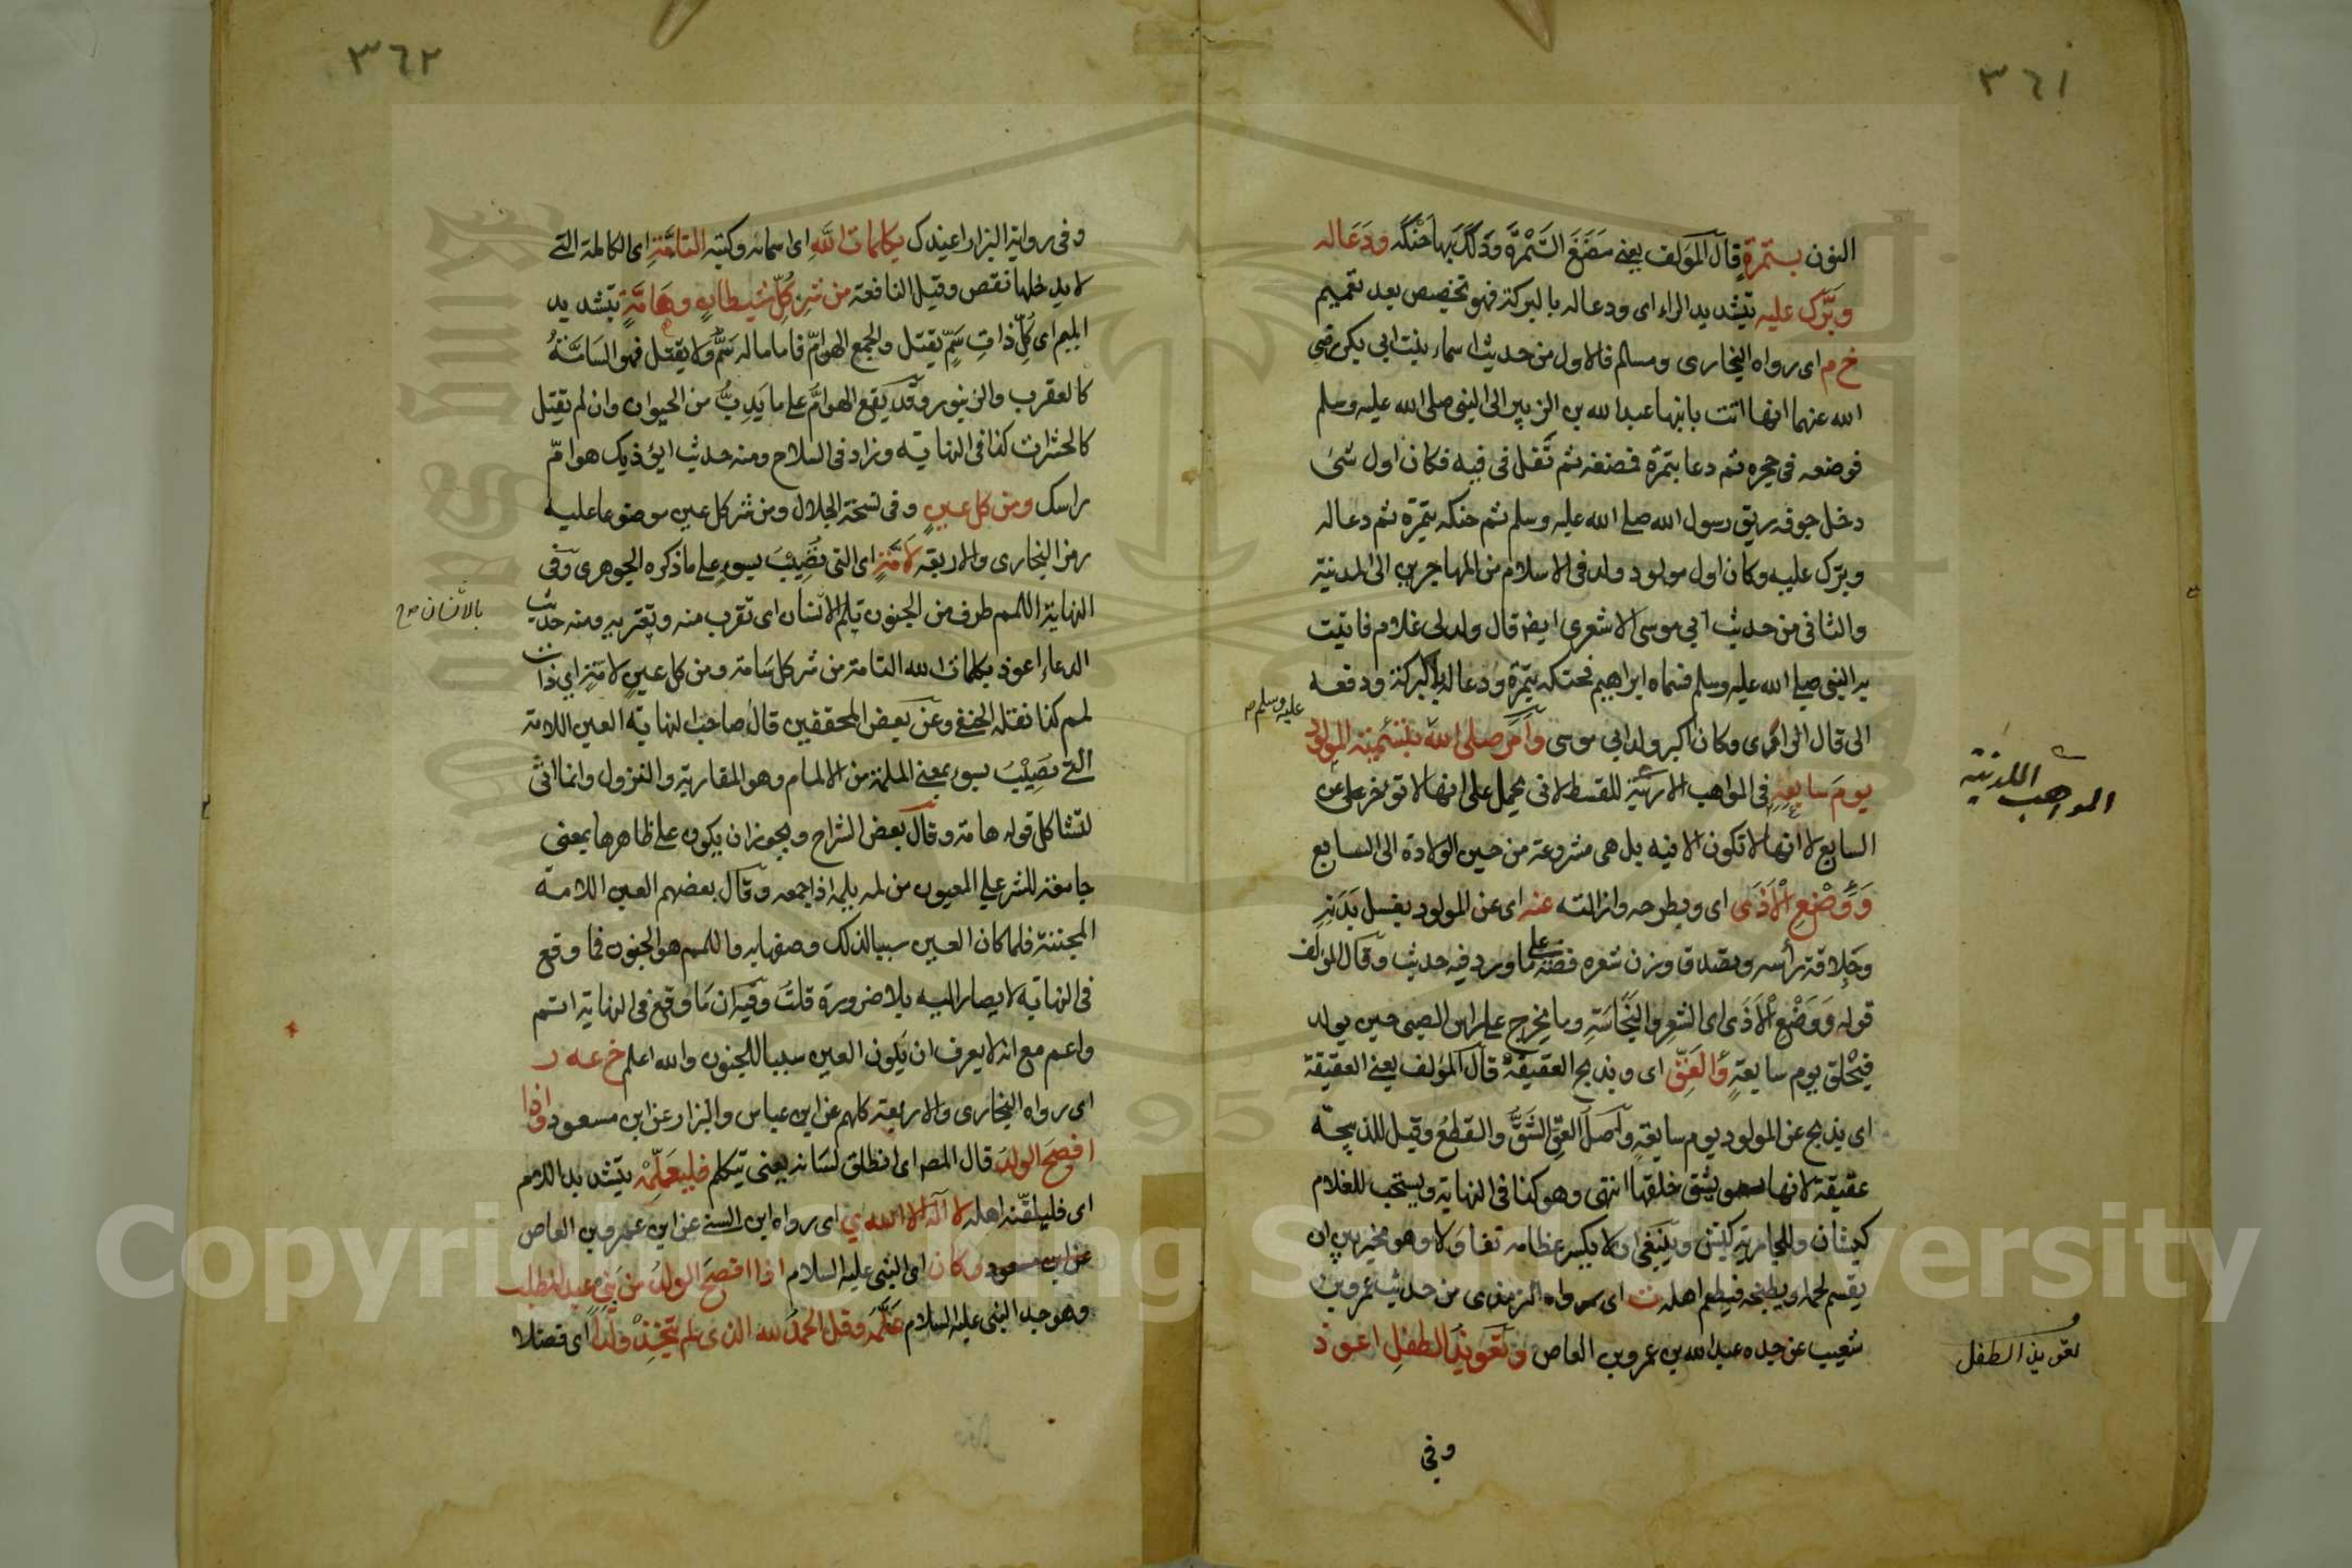 ٣٦١
النون بتمرةٍ قال المؤلف يعني مَضَغَ التَمْرَةَ ودَلَكَ بها حَنَكَه ودَعَا له
وبَرَّك عليه بتشديد الراء اى ودعا له بالبركة فهو تخصيص بعد تعميم
خ م اى رواه البخارى ومسلم فالاول من حديث اسماء بنت ابى بكر رضي
الله عنهما انها اتت بابنها عبد الله بن الزبير الى النبى صلى الله عليه وسلم
فوضعه فى حجره ثم دعا بتمرة فمضغه ثم تَفَل فى فيه فكان اول شئ
دخل جوفه ريق رسول الله صلى الله عليه وسلم ثم حنكه بتمرة ثم دعا له
وبرك عليه وكان اول مولود ولد فى الاسلام من المهاجرين الى المدنية
والثانى من حديث ابي موسى الاشعرى ايضا قال ولد لى غلام فاتيت
به النبى صلى الله عليه وسلم فسماه ابراهيم فحنكه بتمرة ودعا له بالبركة ودفعه
الى قال الراوى وكان اكبر ولد ابى موسى وأمر صلى الله بتسمية المولود
عليه وسلم
يوم سابعه فى المواهب اللدنية للقسطلانى يحمل على انها لا تؤخر على عن
المواهب اللدنية
السابع لا انها لا تكون الا فيه بل هى مشروعة من حين الولادة الى السابع
وَوَضْعِ الأَذَى اى وبطرحه وازالته عنه اى عن المولود بغسل بَدَنِه
وحِلاقة رأسه وتصدق وزن شعره فضة على ما ورد فيه حديث وقال المؤلف
قوله وَوَضْعِ الأَذَى اى الشعرِ والنجاسَةِ وما يخرج على رأس الصبى حين يولد
فيُحْلق يوم سابعةٍ والعَقِّ اى وبذبح العقيقة قال المؤلف يعنى العقيقة
اى يذبح عن المولود يوم سابعةٍ وأصل العقّ الشَقّ والقطع وقيل للذبيحة
عقيقة لانها يشق خلقها انتهى وهو كذا فى النهاية ويستحب للغلام
كبشان وللجارية كبش وينبغى ان لا يكسر عظامه تفاؤلا وهو مخير بين ان
يقسم لحمه او يطبخه فيطعم اهله ت اى رواه الترمذى من حديث عمرو بن
شعيب عن جده عبد الله بن عمرو بن العاص وتعويذ الطفل اعوذ
تعويذ الطفل
وفى
٣٦٢
وفى رواية البزار اعيذك بكلمات الله اى اسمائه وكتبه التامَّةِ اى الكاملة التى
لا يدخلها نقص وقيل النافعة من شرِّ كُلِّ شيطانٍ وهَامَّةٍ بتشديد
الميم اى كُلِّ ذاتِ سَمٍّ يقتل والجمع الهوامّ فاما ما له سَمٌّ ولا يقتل فهو السَامَّةُ
كالعقرب والزنبور وقد يقع الهوامّ على ما يَدِبُّ من الحيوان وان لم يقتل
كالحشرات كذا فى النهاية وزاد فى السلاح ومنه حديث ايؤذيك هوامّ
راسك ومن كل عينٍ وفى نسخة الجلال ومن شر كل عين موضوعا عليه
رمز البخارى والاربعة لامَّةٍ اى التى تُصِيْبُ بسوءٍ على ما ذكره الجوهرى وفى
النهاية اللمم طرف من الجنون يلم الانسان اى تقرب منه ويعتريه ومنه حديث
بالانسان صح
الدعاء اعوذ بكلمات الله التامة من شر كل سَامة ومن كل عينٍ لامةٍ اى ذات
لمم كذا نقله الحنفى وعن بعض المحققين قال صاحب النهاية العين اللامة
التى تصيْبُ بسوء بمعنى الملمة من الالمام وهو المقاربة والنزول وانما اتى
لتشاكل قوله هامة وقال بعض الشراح ويجوز ان يكون على ظاهرها بمعنى
جامعة للشر على المعيون من لمه يلمه اذا جمعه وقال بعضهم العين اللامة
المجننة فلما كان العين سببا لذلك وصفها به واللمم هو الجنون فما وقع
فى النهاية لا يصار اليه بلا ضرورة قلت وفيه ان مَا وقع فى النهاية اتم
واعم مع انه لا يعرف ان يكون العين سببا للجنون والله اعلم خ عه ر
اى رواه البخارى والاربعة كلهم عن ابن عباس والبزار عن ابن مسعود واذا
افصح الولدُ قال المصـ اى انطلق لسَانه يعنى تيكلم فليعَلِّمْه بتشديد اللام
اى فليلقنه اهله لا اله الا الله ي اى رواه ابن السنى عن ابن عمرو بن العاص
عن ابن مسعود وكان اى النبى عليه السلام اذا افصح الولدُ من بَنِي عبد المطلب
وهو جد النبى عليه السلام عَلَّمَه وقل الحمدُ لله الذى لم يتخِذْ ولَداً اى فضلا